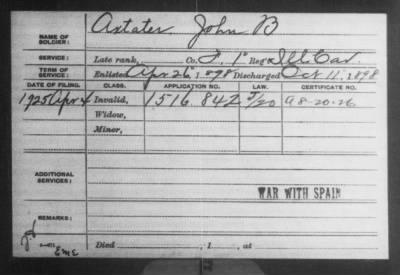 NAME OF SOLDIER: Axtater, John B
SERVICE: Late rank, Co. I, 1" Reg't Ill Cav.
TERM OF SERVICE: Enlisted Apr 26, 1898 Discharged Oct 11, 1898
DATE OF FILING. CLASS. APPLICATION NO. LAW. CERTIFICATE NO.
1925 Apr 4 Invalid, 1516.842 5/20 A 8-20-26
Widow,
Minor,
ADDITIONAL SERVICES:
WAR WITH SPAIN
REMARKS:
Died , 1 , at